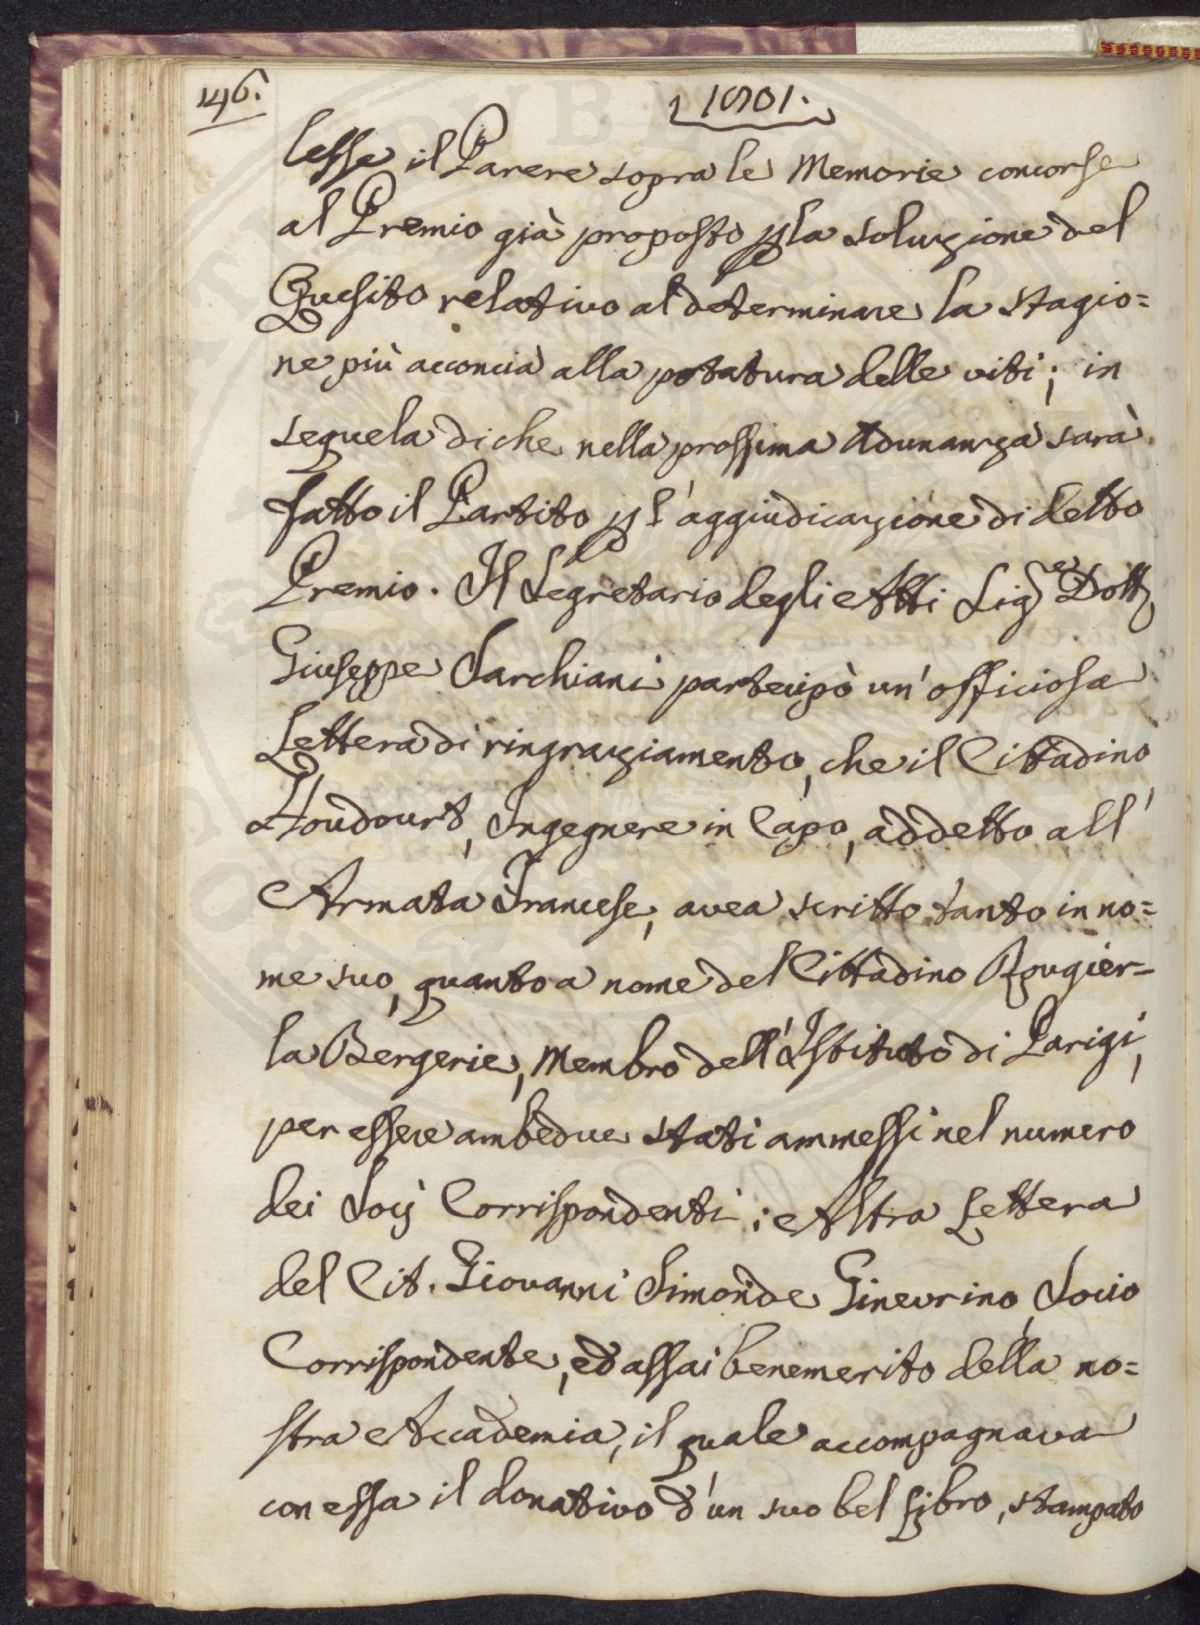 146.
1801.
lesse il Parere sopra le Memorie concorse
al Premio già proposto p la soluzione del
Quesito relativo al determinare la stagio=
ne più acconcia alla potatura delle viti; in
sequela di che nella prossima Adunanza sarà
fatto il Partito p l'aggiudicazione di detto
Premio. Il Segretario degli Atti Sig.re Dott.
Giuseppe Sarchiani partecipò un'officiosa
Lettera di ringraziamento, che il Cittadino
Houdourt, Ingegnere in Capo, addetto all'
Armata Francese, avea scritto tanto in no=
me suo, quanto a nome del Cittadino Rougier=
la Bergerie, Membro dell'Istituto di Parigi,
per essere ambedue stati ammessi nel numero
dei Socij Corrispondenti; Altra Lettera
del Cit. Giovanni Simonde Ginevrino, Socio
Corrispondente, ed assai benemerito della no=
stra Accademia, il quale accompagnava
con essa il donativo d'un suo bel Libro, stampato